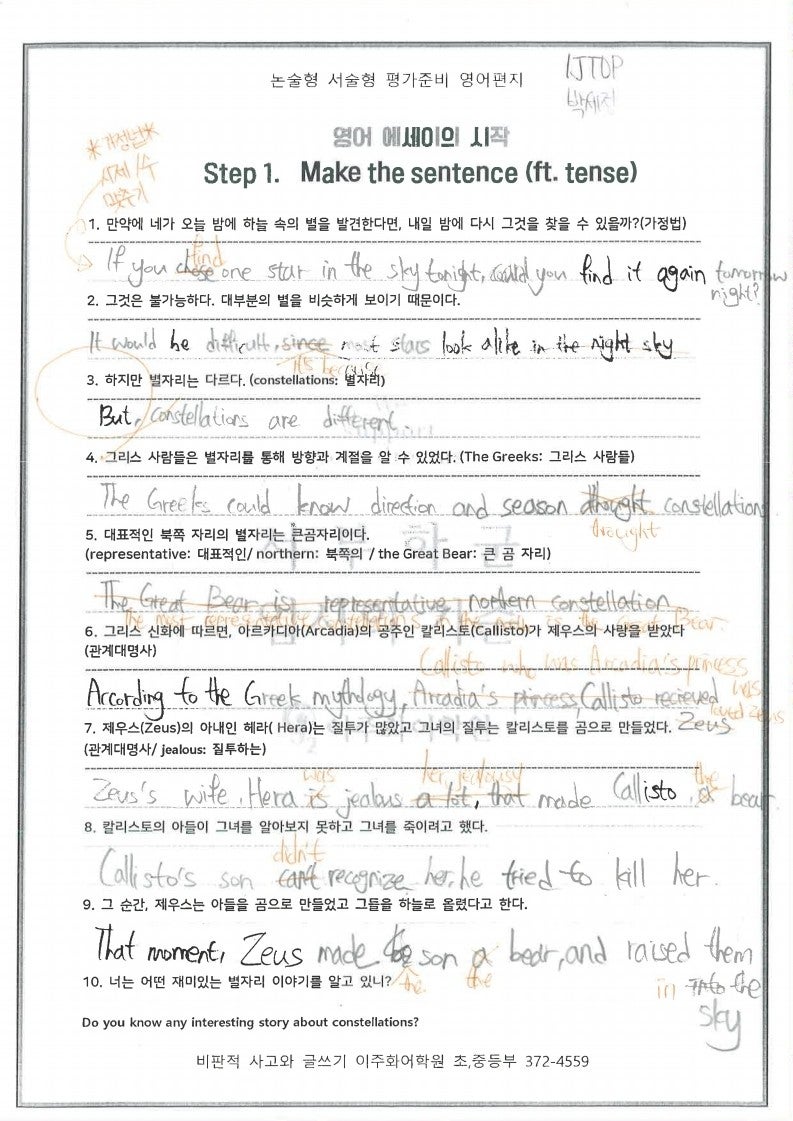 논술형 서술형 평가준비 영어편지
IJTOP
박세정
영어 에세이의 시작
*가정법*
시제 1수
맞추기
Step 1. Make the sentence (ft. tense)
1. 만약에 네가 오늘 밤에 하늘 속의 별을 발견한다면, 내일 밤에 다시 그것을 찾을 수 있을까?(가정법)
find
If you chose one star in the sky tonight, could you find it again tomorrow
night?
2. 그것은 불가능하다. 대부분의 별을 비슷하게 보이기 때문이다.
It would be difficult, since most stars look alike in the night sky
it's because
3. 하지만 별자리는 다르다. (constellations: 별자리)
But, constellations are different.
4. 그리스 사람들은 별자리를 통해 방향과 계절을 알 수 있었다. (The Greeks: 그리스 사람들)
The Greeks could know direction and season throught constellation
throught
5. 대표적인 북쪽 자리의 별자리는 큰곰자리이다.
(representative: 대표적인/ northern: 북쪽의 / the Great Bear: 큰 곰 자리)
The Great Bear is representative nothern constellation
The most representative constellation in the north is the Great Bear.
6. 그리스 신화에 따르면, 아르카디아(Arcadia)의 공주인 칼리스토(Callisto)가 제우스의 사랑을 받았다
(관계대명사)
Callisto who was Arcadia's princess
According to the Greek mythology, Arcadia's princess, Callisto recieved
was
loved Zeus
Zeus
7. 제우스(Zeus)의 아내인 헤라( Hera)는 질투가 많았고 그녀의 질투는 칼리스토를 곰으로 만들었다.
(관계대명사/ jealous: 질투하는)
was her jealousy the
Zeus's wife, Hera is jealous a lot, that made Callisto a bear.
8. 칼리스토의 아들이 그녀를 알아보지 못하고 그녀를 죽이려고 했다.
didn't
Callisto's son can't recognize her, he tried to kill her.
9. 그 순간, 제우스는 아들을 곰으로 만들었고 그들을 하늘로 올렸다고 한다.
That moment, Zeus made son a bear, and raised them
the the in into the
sky
10. 너는 어떤 재미있는 별자리 이야기를 알고 있니?
Do you know any interesting story about constellations?
비판적 사고와 글쓰기 이주화어학원 초,중등부 372-4559